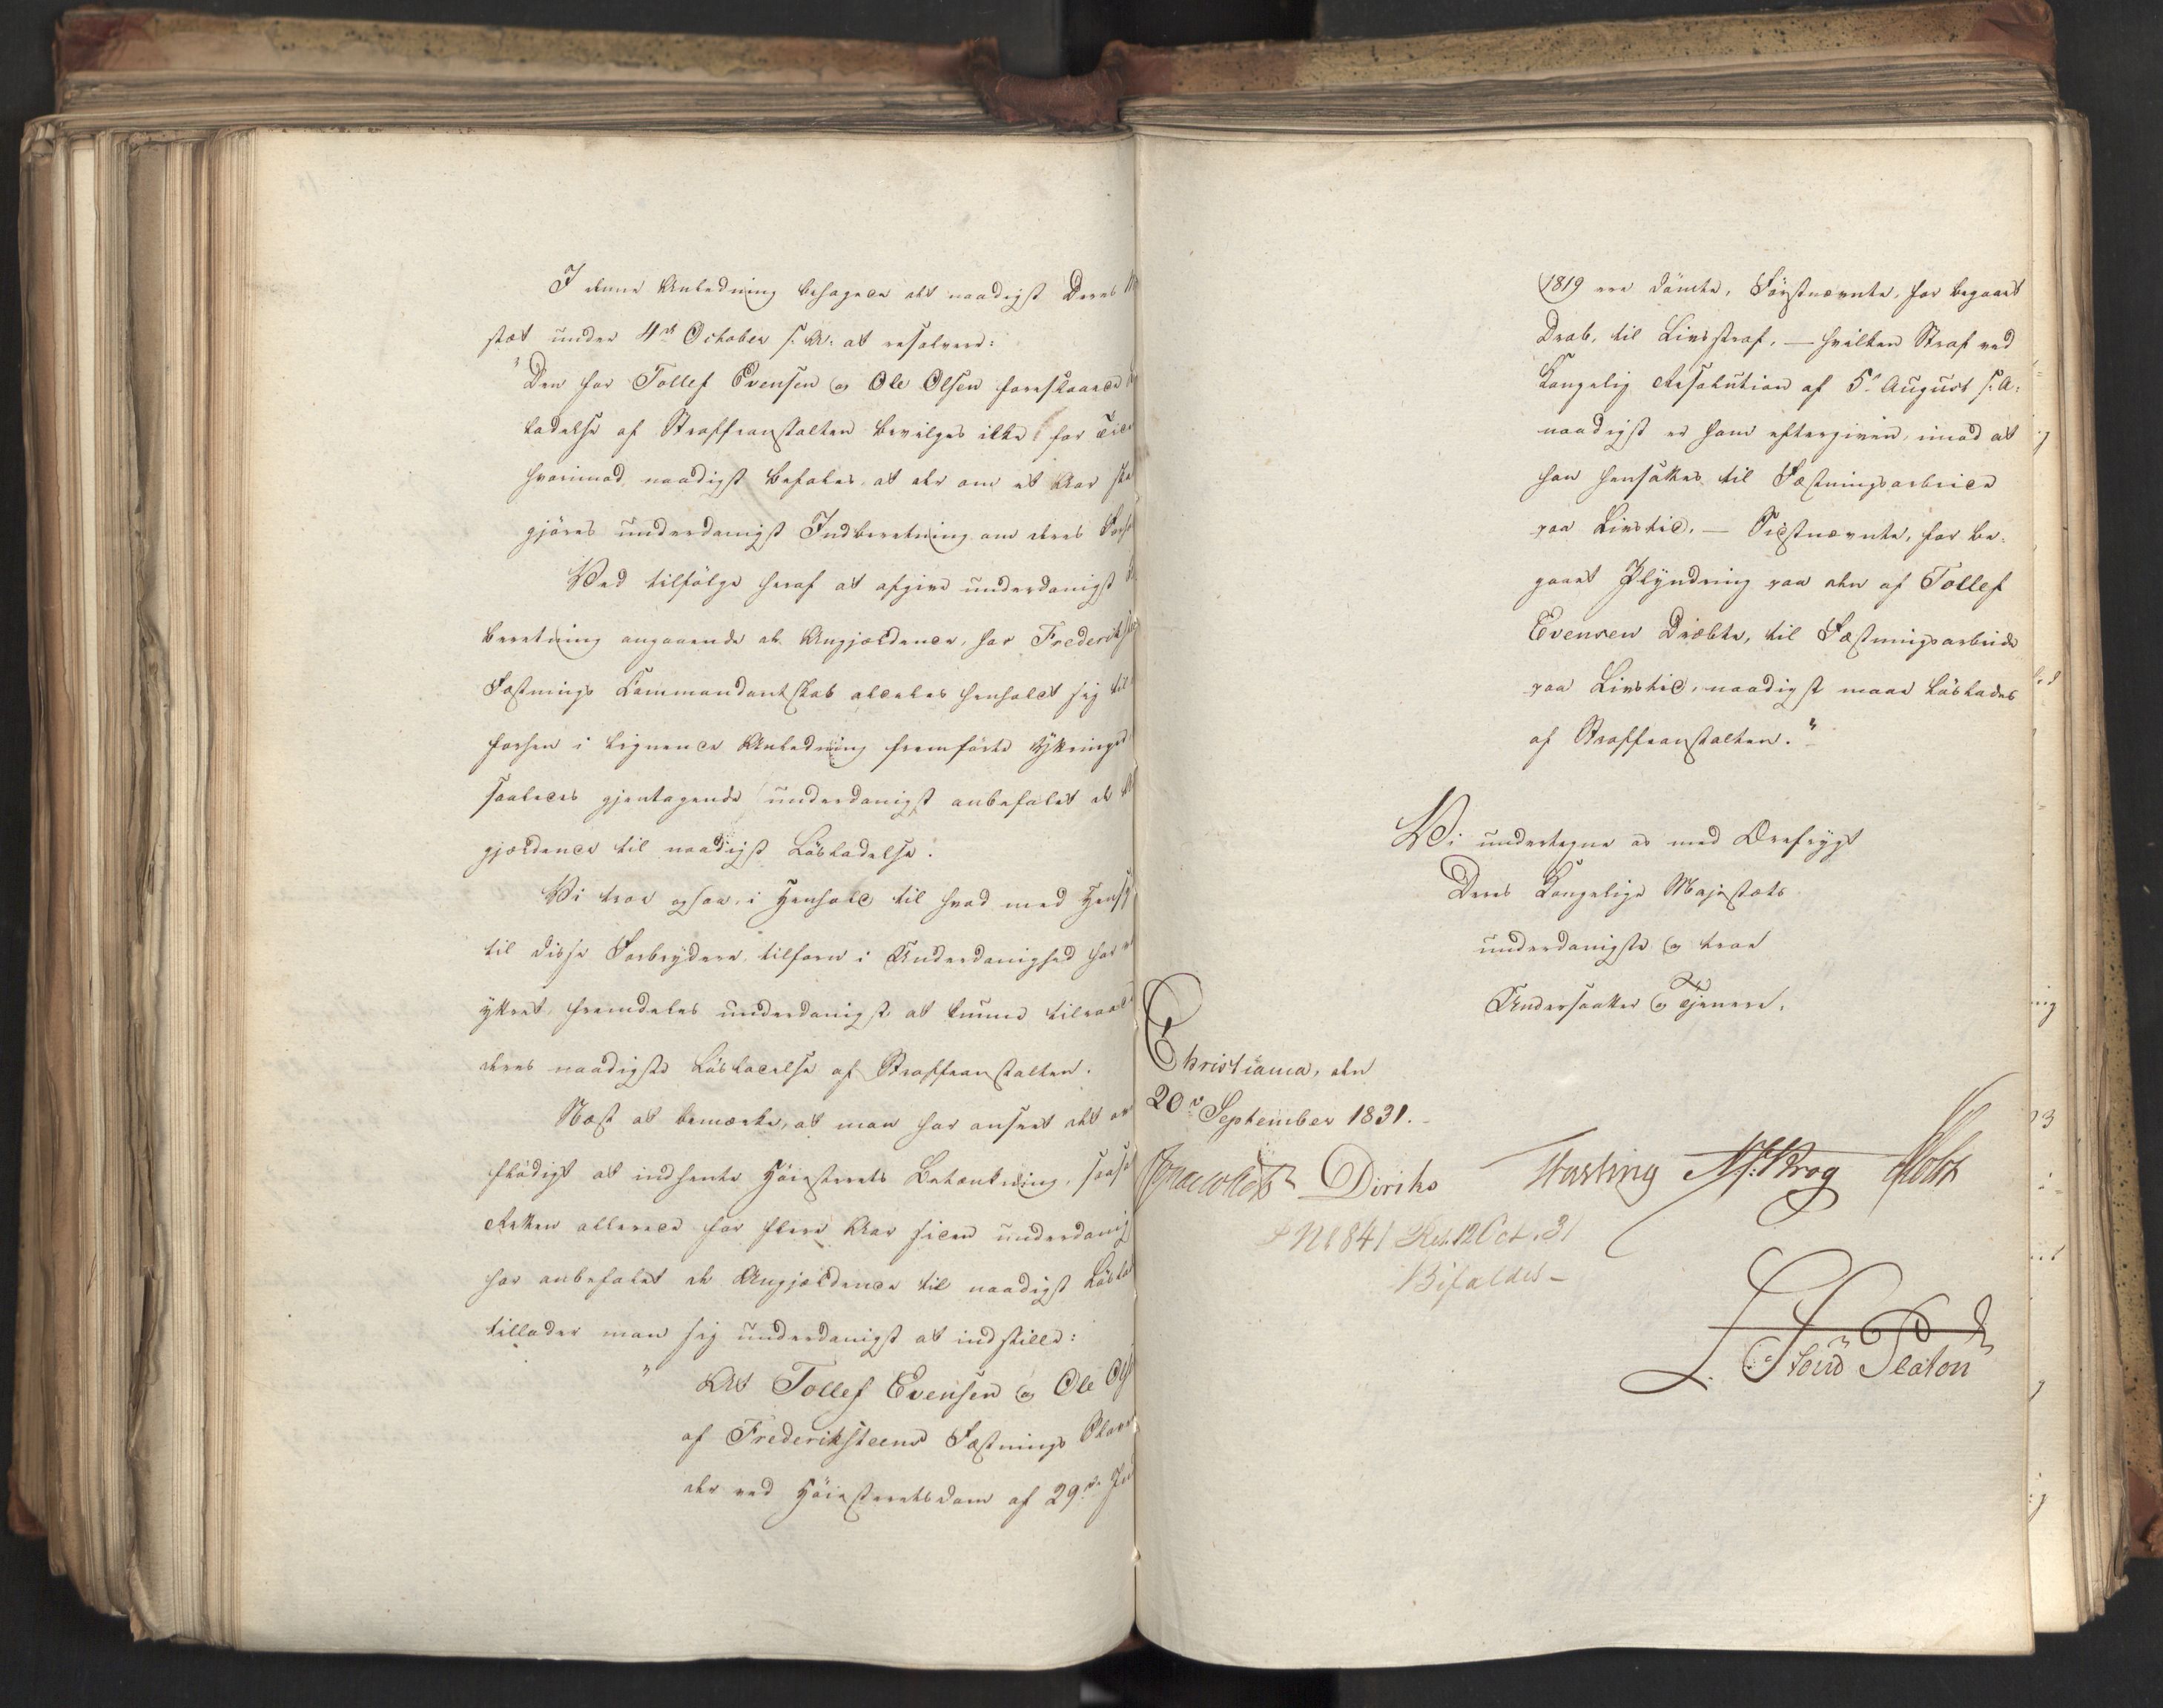 I denne Anledning behagede det naadigst Deres M
stæt under 4de October f. A. at resolvere:
"Den for Tollef Evensen og Ole Olsen foreslaaede
ladelse af Straffeanstalten bevilges ikke for Tide
hvorimod naadigst befales, at der om et Aar ska
gjöres underdanigst Indberetning om deres Forho
Ved tilfölge heraf at afgive underdanigst
beretning angaaende de Angjældende, har Frederikste
Fæstnings Commandantskab aldeles henholdt sig til
forhen i lignende Anledning fremförte Yttringer
saaledes gjentagende underdanigst anbefalet de A
gjældende til naadigst Lösladelse.
Vi troe ogsaa, i Henhold til hvad med Hensy
til disse Forbrydere tilforn i Underdanighed har
yttret, fremdeles underdanigst at kunne tilraade
deres naadigste Lösladelse af Straffeanstalten.
Næst at bemærke, at man har anseet det
flödigt at indhente Höiesterets Betænkning,
Retten allerede for flere Aar siden underdanig
har anbefalet de Angjældende til naadigst Löslad
tillader man sig underdanigst at indstille:
" At Tollef Evensen og Ole Ols
af Frederiksteens Fæstnings Slave
der ved Höiesteretsdom af 29de Ju
1819 ere dömte, Förstnævnte, for begaaet
Drab, til Livsstraf, — hvilken Straf ved
Kongelig Resolution af 5te August s. A.
naadigst er ham eftergiven, imod at
han hensættes til Fæstningsarbeide
paa Livstid, — Sidstnævnte, for be-
gaaet Plyndring paa den af Tollef
Evensen Dræbte, til Fæstningsarbeide
paa Livstid, naadigst maae löslades
af Straffeanstalten."
Vi undertegne os med Ærefrygt
Deres Kongelige Majestæts
underdanigste og troe
Undersaatter og Tjenere.
Christiania, den
20de September 1831.
Jonas Collett Diriks Fasting M: Krog Holst
N 1841 Res. 12 Oct. 31
Bifaldes
L. Stoud Platou